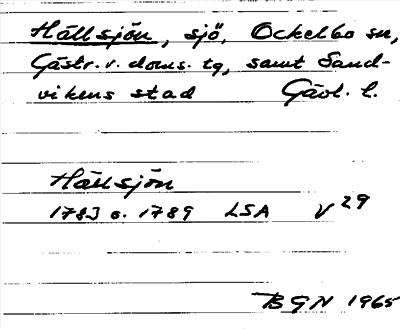 Hällsjön, sjö, Ockelbo sn,
Gästr. v. doms. tg, samt Sand-
vikens stad Gävl. l.
Hällsjön
1783 o. 1789 LSA V 29
BGN 1965